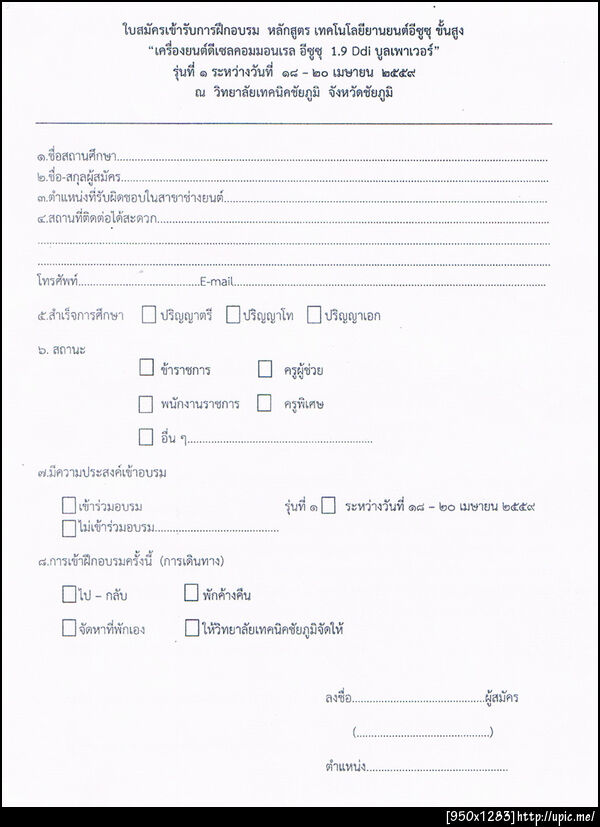 ใบสมัครเข้ารับการฝึกอบรม หลักสูตร เทคโนโลยียานยนต์อีซูซุ ขั้นสูง
"เครื่องยนต์ดีเซลคอมมอนเรล อีซูซุ 1.9 Ddi บูลเพาเวอร์"
รุ่นที่ ๑ ระหว่างวันที่ ๑๘ – ๒๐ เมษายน ๒๕๕๙
ณ วิทยาลัยเทคนิคชัยภูมิ จังหวัดชัยภูมิ
๑.ชื่อสถานศึกษา
๒.ชื่อ-สกุลผู้สมัคร
๓.ตำแหน่งที่รับผิดชอบในสาขาช่างยนต์
๔.สถานที่ติดต่อได้สะดวก
โทรศัพท์ E-mail
๕.สำเร็จการศึกษา ปริญญาตรี ปริญญาโท ปริญญาเอก
๖. สถานะ
ข้าราชการ ครูผู้ช่วย
พนักงานราชการ ครูพิเศษ
อื่น ๆ
๗.มีความประสงค์เข้าอบรม
เข้าร่วมอบรม รุ่นที่ ๑ ระหว่างวันที่ ๑๘ – ๒๐ เมษายน ๒๕๕๙
ไม่เข้าร่วมอบรม
๘.การเข้าฝึกอบรมครั้งนี้ (การเดินทาง)
ไป – กลับ พักค้างคืน
จัดหาที่พักเอง ให้วิทยาลัยเทคนิคชัยภูมิจัดให้
ลงชื่อ ผู้สมัคร
( )
ตำแหน่ง
[950x1283]http://upic.me/